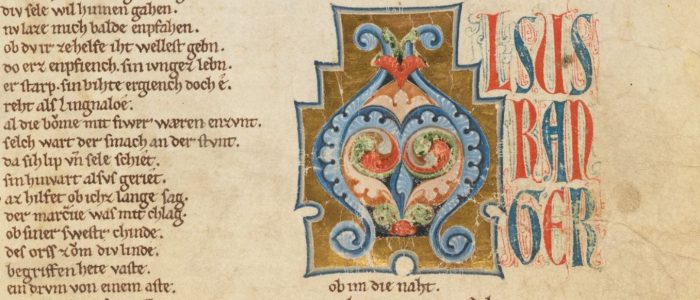 div sele wil hinnen gahen.
nv laze mich balde enpfahen.
ob dv ir zehelfe iht wellest gebn.
do erz enpfiench. sin ivngez lebn.
er starp. sin bihte ergiench doch é.
reht als Lingnaloé.
al die böme mit fiwer wæren enzvnt.
selch wart der smach an der stvnt.
da sih lip vn̄ sele schiet.
sin hinvart alsvs geriet.
az hilfet ob ichz lange sag.
der marcus was mit chlag.
ob siner swestr chinde.
des orss zom div linde.
begriffen hete vaste.
ein drvm von einem aste.
LSUS
RAN
GER
ob im die naht.